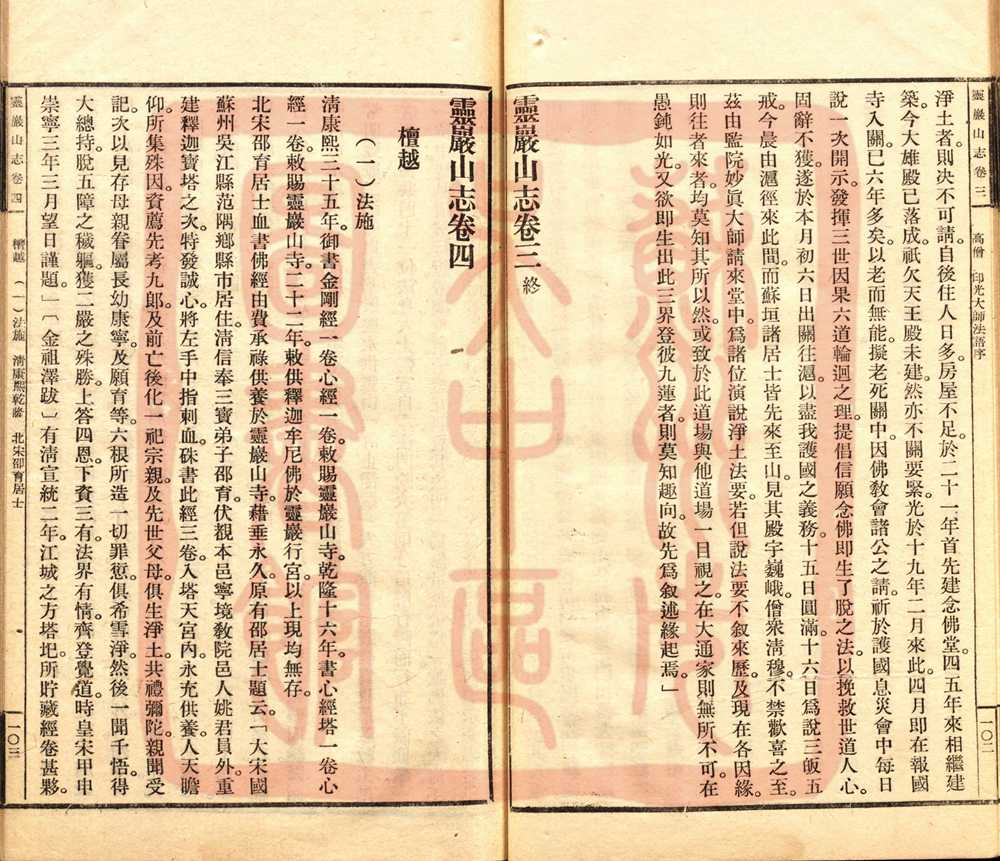 靈巖山志卷三
高僧 印光大師法語序
一〇二
淨土者。則決不可請。自後住人日多。房屋不足。於二十一年首先建念佛堂。四五年來相繼建
築。今大雄殿已落成。祇欠天王殿未建。然亦不關要緊。光於十九年二月來此。四月即在報國
寺入關。已六年多矣。以老而無能。擬老死關中。因佛教會諸公之請。祈於護國息災會中。每日
說一次開示。發揮三世因果六道輪迴之理。提倡信願念佛即生了脫之法。以挽救世道人心。
固辭不獲。遂於本月初六日出關往滬。以盡我護國之義務。十五日圓滿。十六日爲說三皈五
戒。今晨由滬徑來此間。而蘇垣諸居士皆先來至山。見其殿宇巍峨。僧衆清穆。不禁歡喜之至。
茲由監院妙眞大師請來堂中。爲諸位演說淨土法要。若但說法要。不叙來歷。及現在各因緣。
則往者來者。均莫知其所以然。或致於此道場與他道場一目視之。在大通家則無所不可。在
愚鈍如光。又欲即生出此三界登彼九蓮者。則莫知趣向。故先爲叙述緣起焉。」
靈巖山志卷三 終
靈巖山志卷四
檀越
（一）法施
清康熙三十五年。御書金剛經一卷。心經一卷。敕賜靈巖山寺。乾隆十六年。書心經塔一卷。心
經一卷。敕賜靈巖山寺。二十二年。敕供釋迦牟尼佛於靈巖行宮。以上現均無存。
北宋邵育居士血書佛經。由費承祿供養於靈巖山寺。藉垂永久。原有邵居士題云。「大宋國
蘇州吳江縣范隅鄉縣市居住。清信奉三寶弟子邵育。伏覩本邑寧境教院邑人姚君員外。重
建釋迦寶塔之次。特發誠心。將左手中指刺血。硃書此經三卷。入塔天宮內。永充供養。人天瞻
仰。所集殊因。資薦先考九郎。及前亡後化一祀宗親。及先世父母。俱生淨土。共禮彌陀。親聞受
記。次以見存母親。眷屬長幼康寧。及願育等。六根所造一切罪愆。俱希雪淨。然後一聞千悟。得
大總持。脫五障之穢軀。獲二嚴之殊勝。上答四恩。下資三有。法界有情。齊登覺道。時皇宋甲申
崇寧三年三月望日謹題。」〔金祖澤跋〕有清宣統二年。江城之方塔圯。所貯藏經卷甚夥。
靈巖山志卷四
檀越 （一）法施 清康熙乾隆 北宋邵育居士
一〇三